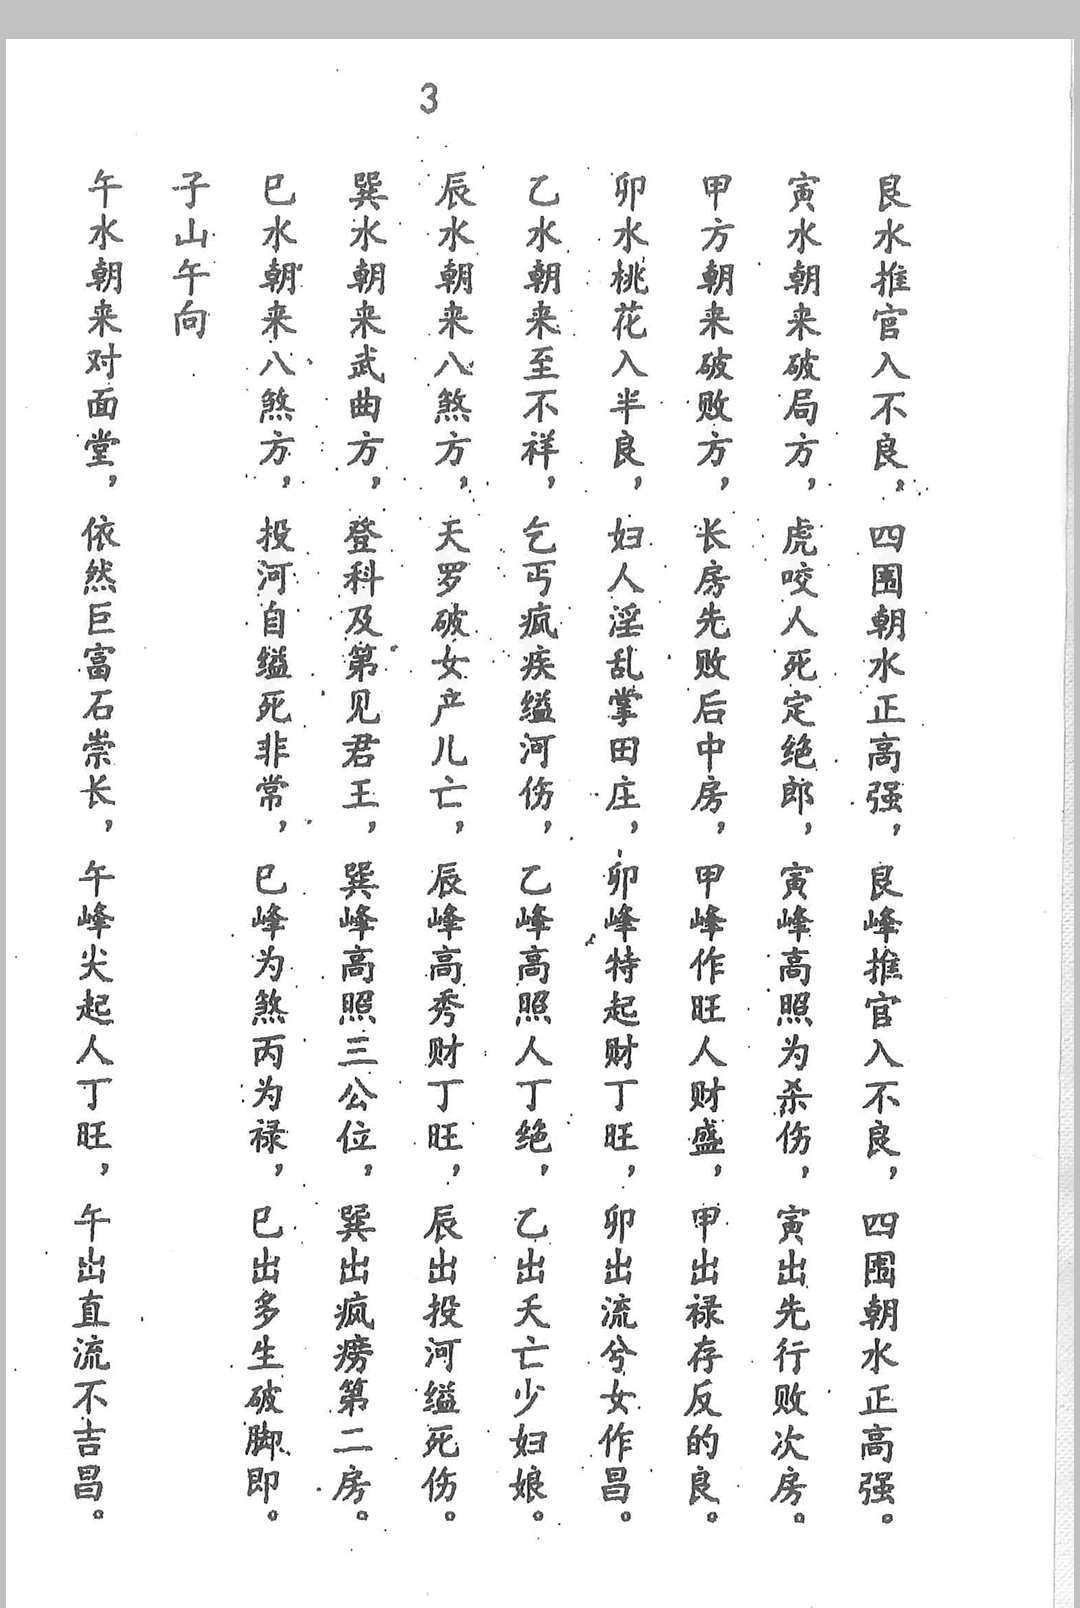 3
艮水推官入不良，四围朝水正高强，艮峰推官入不良，四围朝水正高强。
寅水朝来破局方，虎咬人死定绝郎，寅峰高照为杀伤，寅出先行败次房。
甲方朝来破败方，长房先败后中房，甲峰作旺人财盛，甲出禄存反的良。
卯水桃花入半良，妇人淫乱掌田庄，卯峰特起财丁旺，卯出流兮女作昌。
乙水朝来至不祥，乞丐疯疾缢河伤，乙峰高照人丁绝，乙出夭亡少妇娘。
辰水朝来八煞方，天罗破女产儿亡，辰峰高秀财丁旺，辰出投河缢死伤。
巽水朝来武曲方，登科及第见君王，巽峰高照三公位，巽出疯痨第二房。
巳水朝来八煞方，投河自缢死非常，巳峰为煞丙为禄，巳出多生破脚郎。
子山午向
午水朝来对面堂，依然巨富石崇长，午峰尖起人丁旺，午出直流不吉昌。